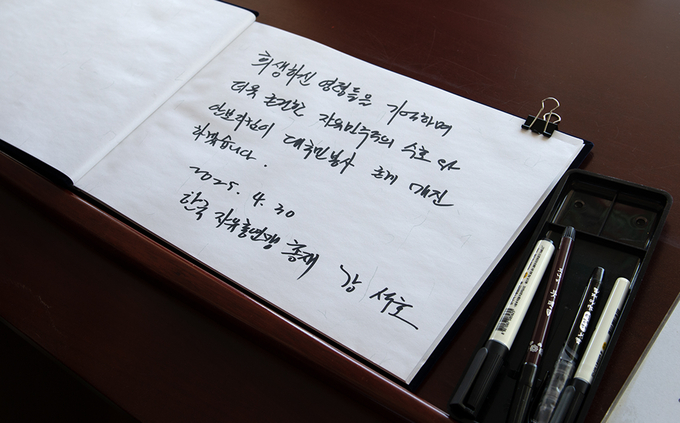 희생하신 영령들을 기억하며
더욱 튼건한 자유민주주의 수호와
안보지킴이 대국민봉사 초계 매진
하겠습니다.
2025. 4. 30
한국 자유총연맹 총재 강 석호